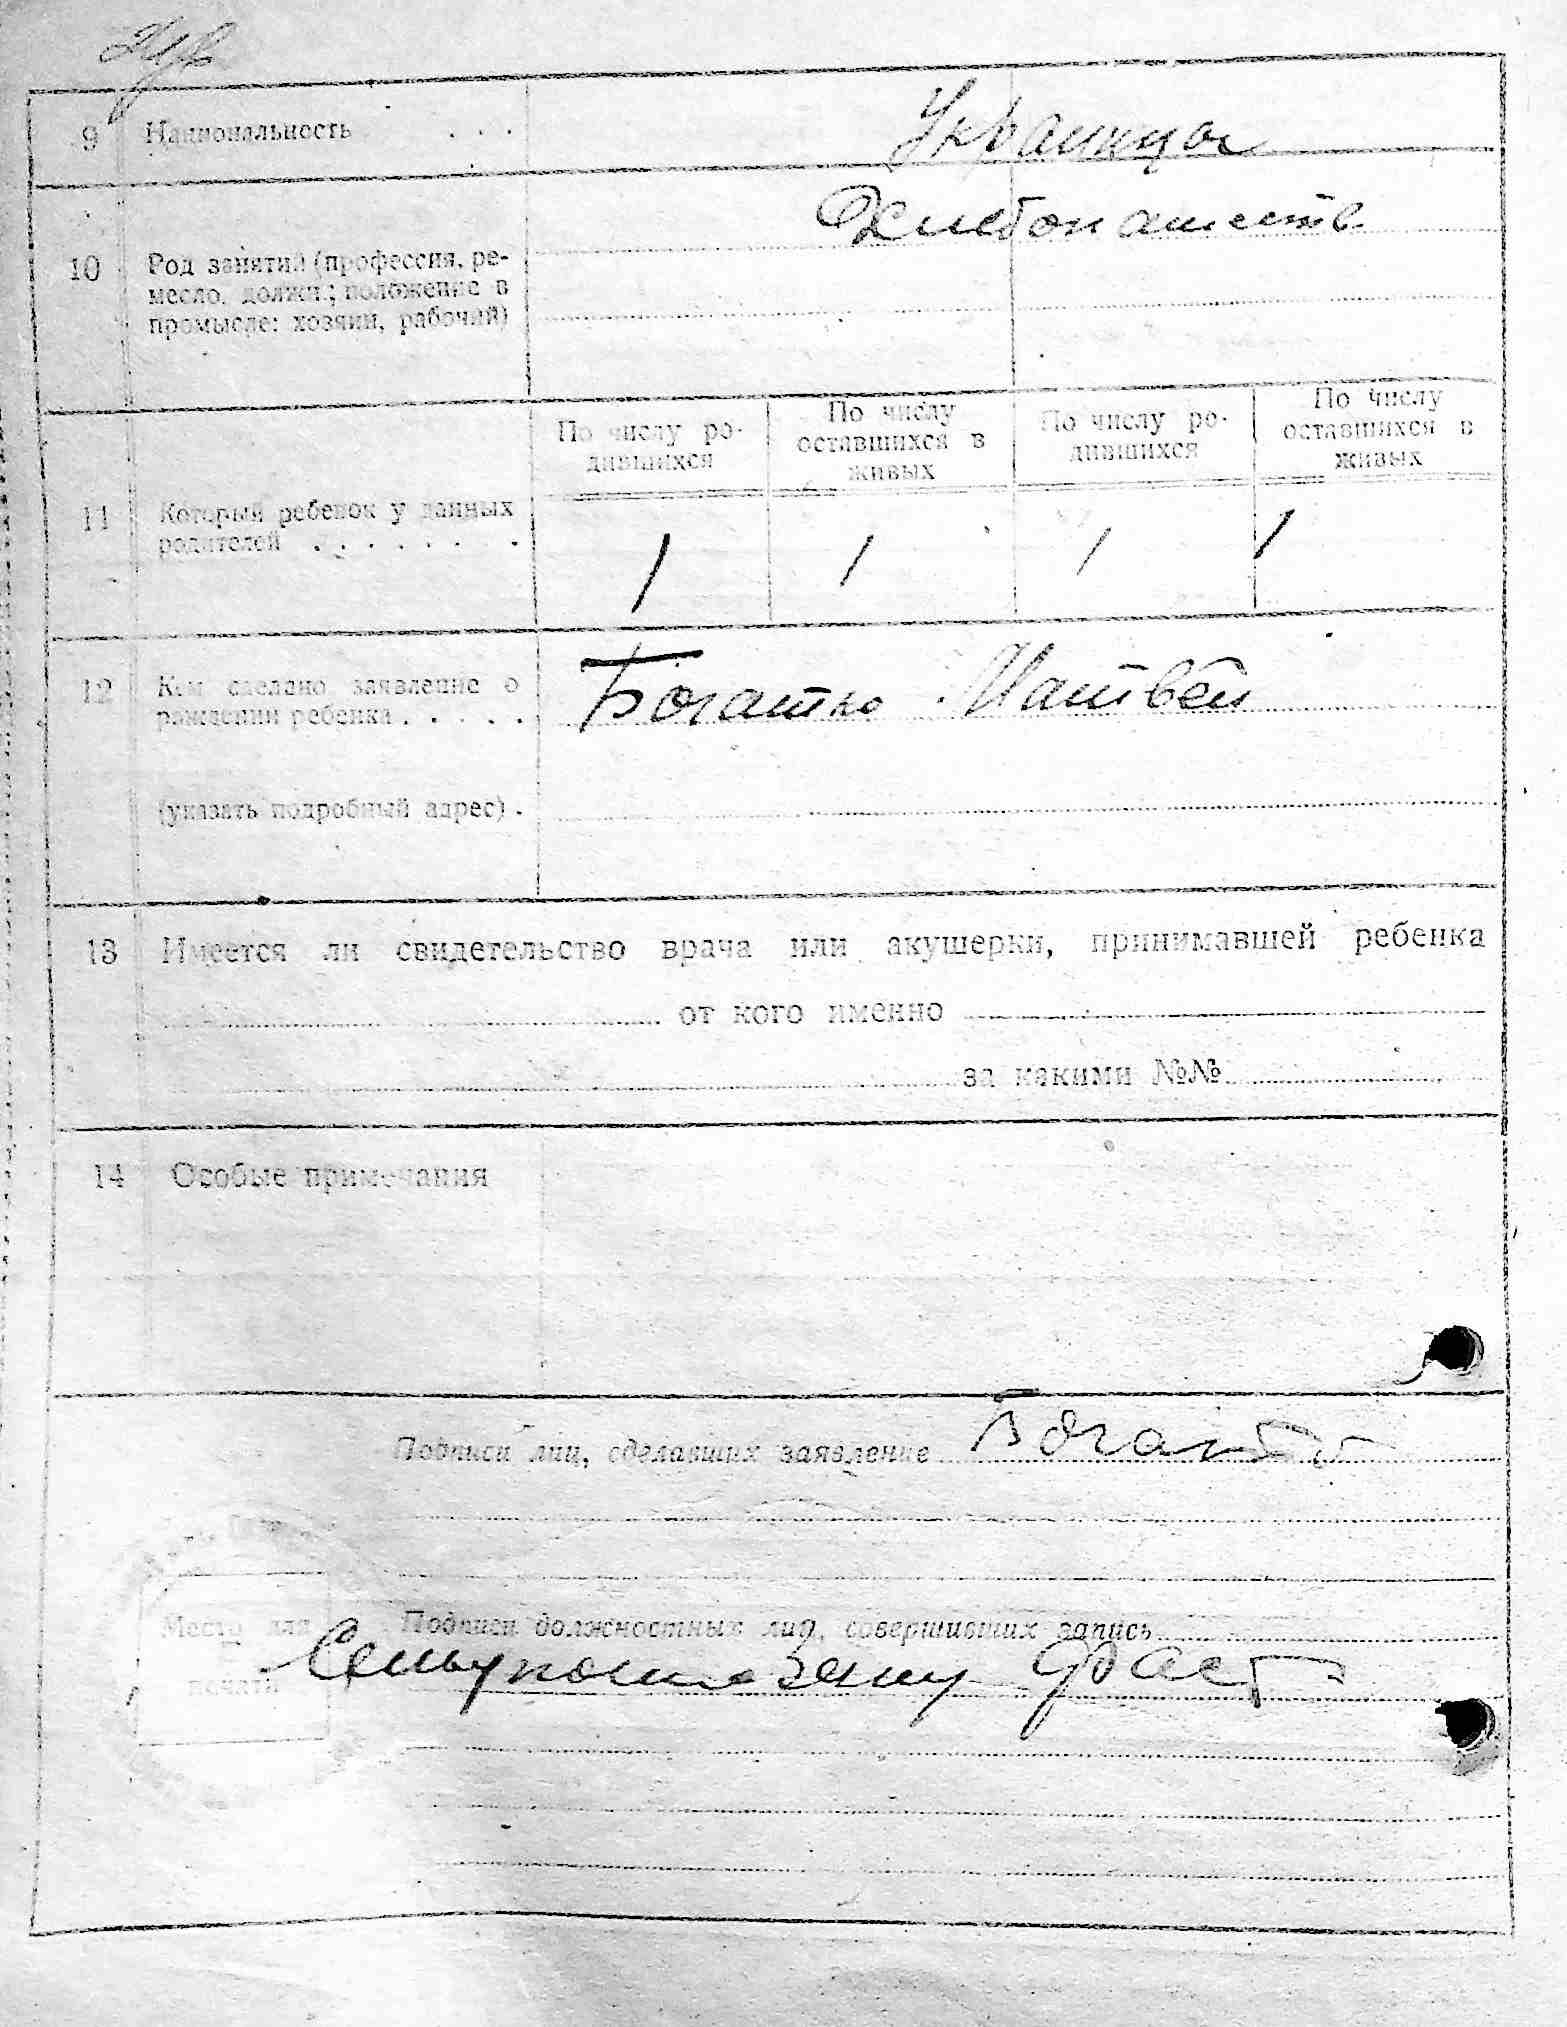 9 Национальность . . . Украинцы
Хлебопашеств.
10 Род занятий (профессия, ре-
месло, должн.; положение в
промысле: хозяин, рабочий)
По числу ро-
дившихся
По числу
оставшихся в
живых
По числу ро-
дившихся
По числу
оставшихся в
живых
11 Который ребенок у данных
родителей . . . . . . .
1 1 1 1
12 Кем сделано заявление о
рождении ребенка . . . . . Богатко Матвей
(указать подробный адрес) .
13 Имеется ли свидетельство врача или акушерки, принимавшей ребенка
от кого именно
за какими №№
14 Особые примечания
Подписи лиц, сделавших заявление
Место для
печати
Подписи должностных лиц, совершивших запись